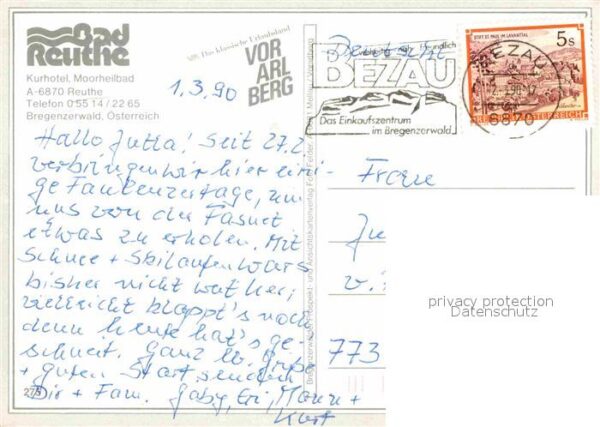 Bad
Reuthe
Kurhotel, Moorheilbad
A-6870 Reuthe
Telefon 0 55 14 / 22 65
Bregenzerwald, Österreich
Das klassische Urlaubsland
VOR
ARL
BERG
1.3.90
Hallo Jutta! Seit 27.2.
verbringen wir hier eini-
ge Faulenzertage, um
uns von der Fasnet
etwas zu erholen. Mit
Schnee + Skilaufen war's
bisher nicht weit her,
vielleicht klappt's noch
denn heute hat's ge-
schneit. Ganz lb. Grüße
+ guten Start senden
Dir + Fam. Gaby, Eri, +
Kurt
275
freundlich
BEZAU
Das Einkaufszentrum
im Bregenzerwald
BEZAU
6870
STIFT ST. PAUL IM LAVANTTAL
5 S
REPUBLIK ÖSTERREICH
Frau
Ju
v.
773
privacy protection
Datenschutz